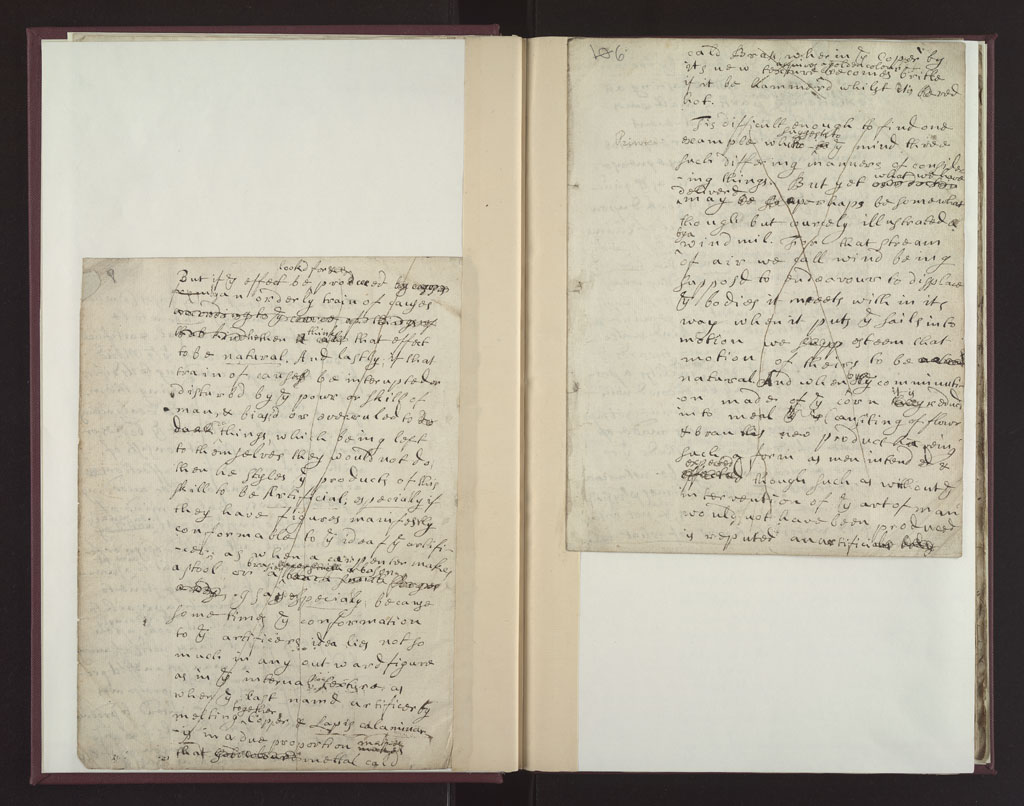 But if ye effect look'd for be produced
an orderly train of causes
whether thinks that effect
to be natural. And lastly, if that
train of causes be interrupted or
disturb'd by ye pow'r or skill of
man, & bias'd or overrul'd to
things, which being left
to themselves they would not do,
then he styles ye product of this
skill to be Artificial, especialy if
they have figures manifestly
conformable to ye idea of ye artifi-
-cer; as when a carpenter makes
a stool or a
I say especialy because
some times ye conformation
to ye artificers idea lies not so
much in any outward figure
as in ye internal texture, as
when ye last namd artificer by
melting together Copper & Lapis calaminar-
-is in a due proportion makes
that mettal cald
186
cald Brass, wherein ye Coper by
its new texture acquires a golden colour & becomes britle
if it be hammerd whilst tis red
hot.
Tis difficult enough to find one
example suggests to ye mind three
such differing manners of consider-
-ing things. But yet what we have
deliverd may be perhaps be somewhat
though but coursly illustrated
by a wind mil. For that stream
of air we call wind being
supposd to endeavour to displace
ye bodies it meets with in its
way when it puts ye sails into
motion we esteem that
motion of theirs to be
natural. And when by comminuti-
on made of ye corn is reduc'd
into meal consisting of flowr
& bran this new product haveing
such a form as men intended &
expected though such as without ye
intervention of ye art of man
would not have been produced
is reputed an artificial